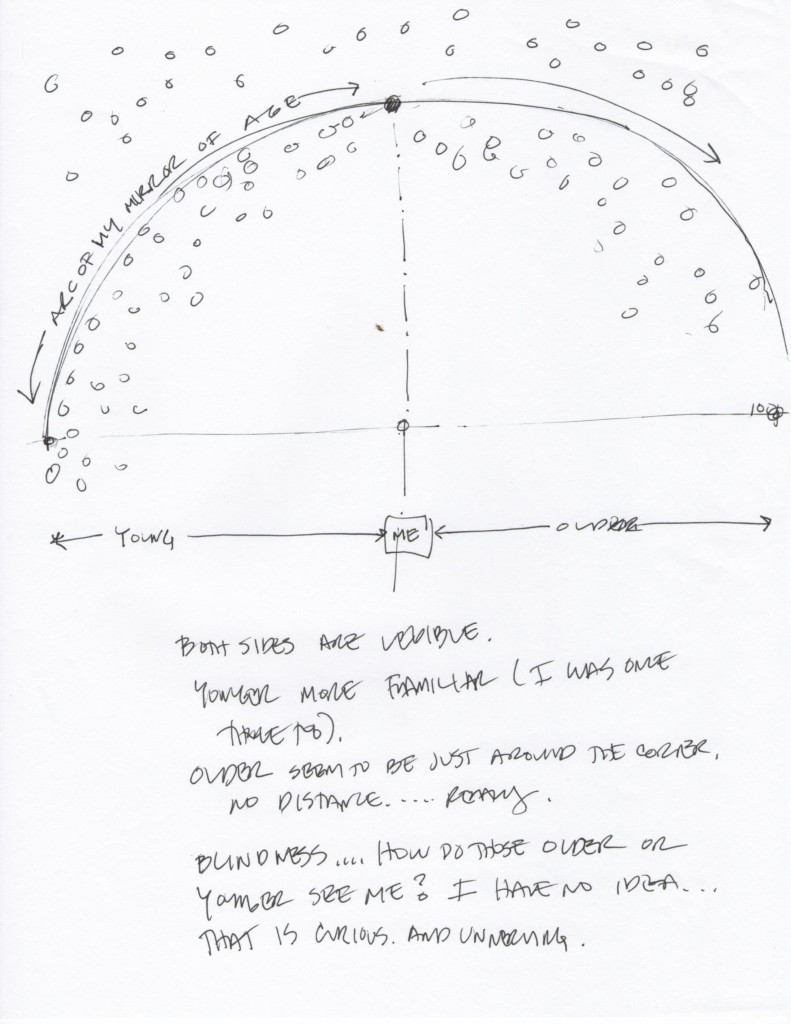 ARC OF MY MIRROR OF AGE
100
YOUNG
ME
OLDER
BOTH SIDES ARE
YOUNGER MORE FAMILIAR (I WAS ONCE
THERE TOO).
OLDER SEEM TO BE JUST AROUND THE CORNER,
NO DISTANCE..... REALLY.
BLINDNESS.... HOW DO THOSE OLDER OR
YOUNGER SEE ME? I HAVE NO IDEA...
THAT IS CURIOUS. AND UNNERVING.